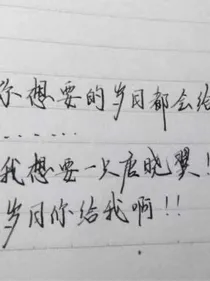 你想要的岁月都会给
......
我想要一只唐晓翼!
岁月你给我啊!!